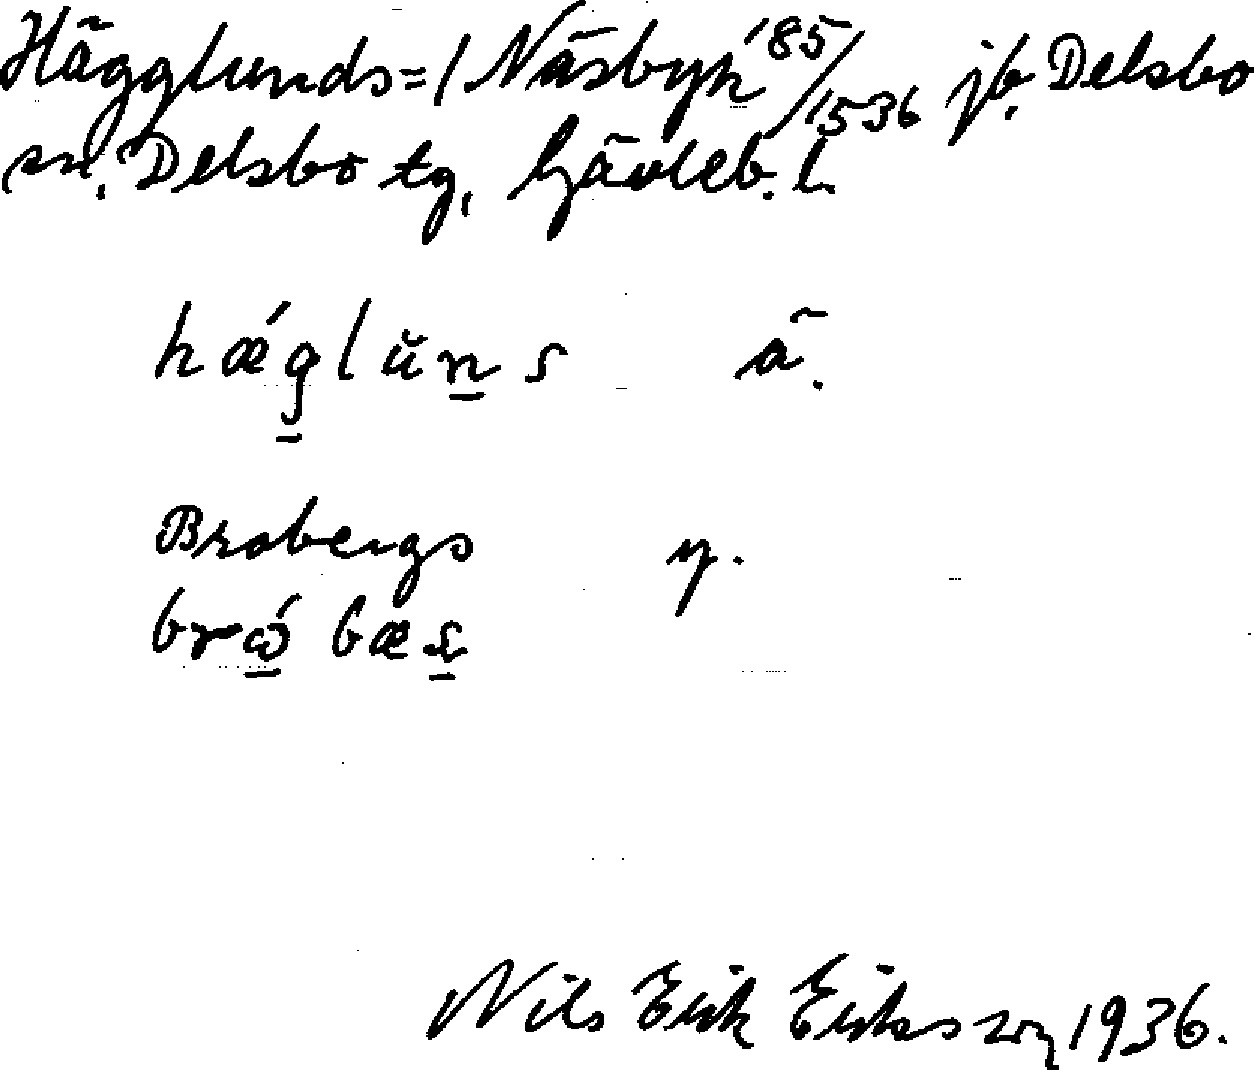 Hägglunds=/Näsbyn '85/1536 jb. Delsbo
sn. Delsbo tg, Gävleb. L.
hǽglŭn̲s ä.
Brobergs y.
brώ̲bæs̲
Nils Erik Eriksson 1936.